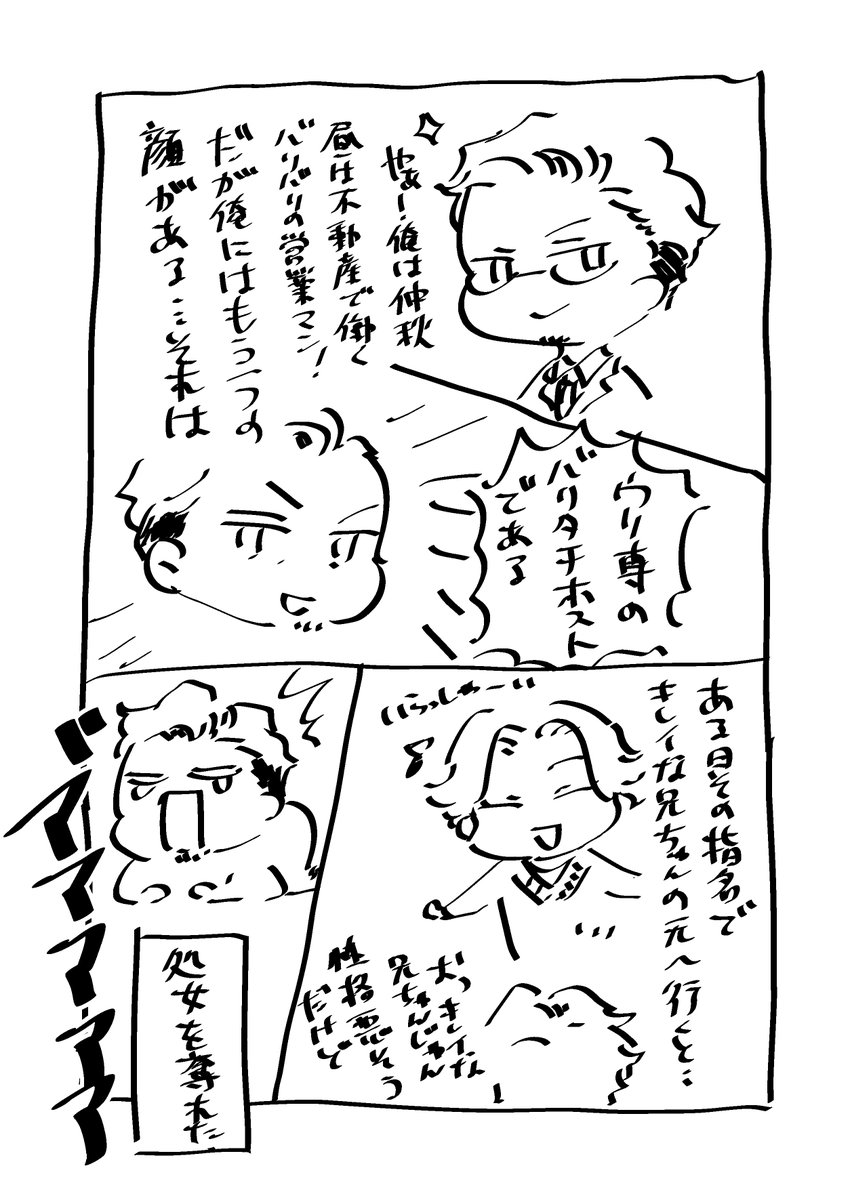 やぁー!俺は仲秋
昼は不動産で働く
バリバリの営業マン!
だが俺にはもう一つの
顔がある…それは
ウリ専の
バリタチホスト
である
ある日その指名で
キレイな兄ちゃんの元へ行くと…
いらっしゃーい
おっキレイな
兄ちゃんじゃん
性格悪そう
だけど
ドアアアアア
処女を奪われた